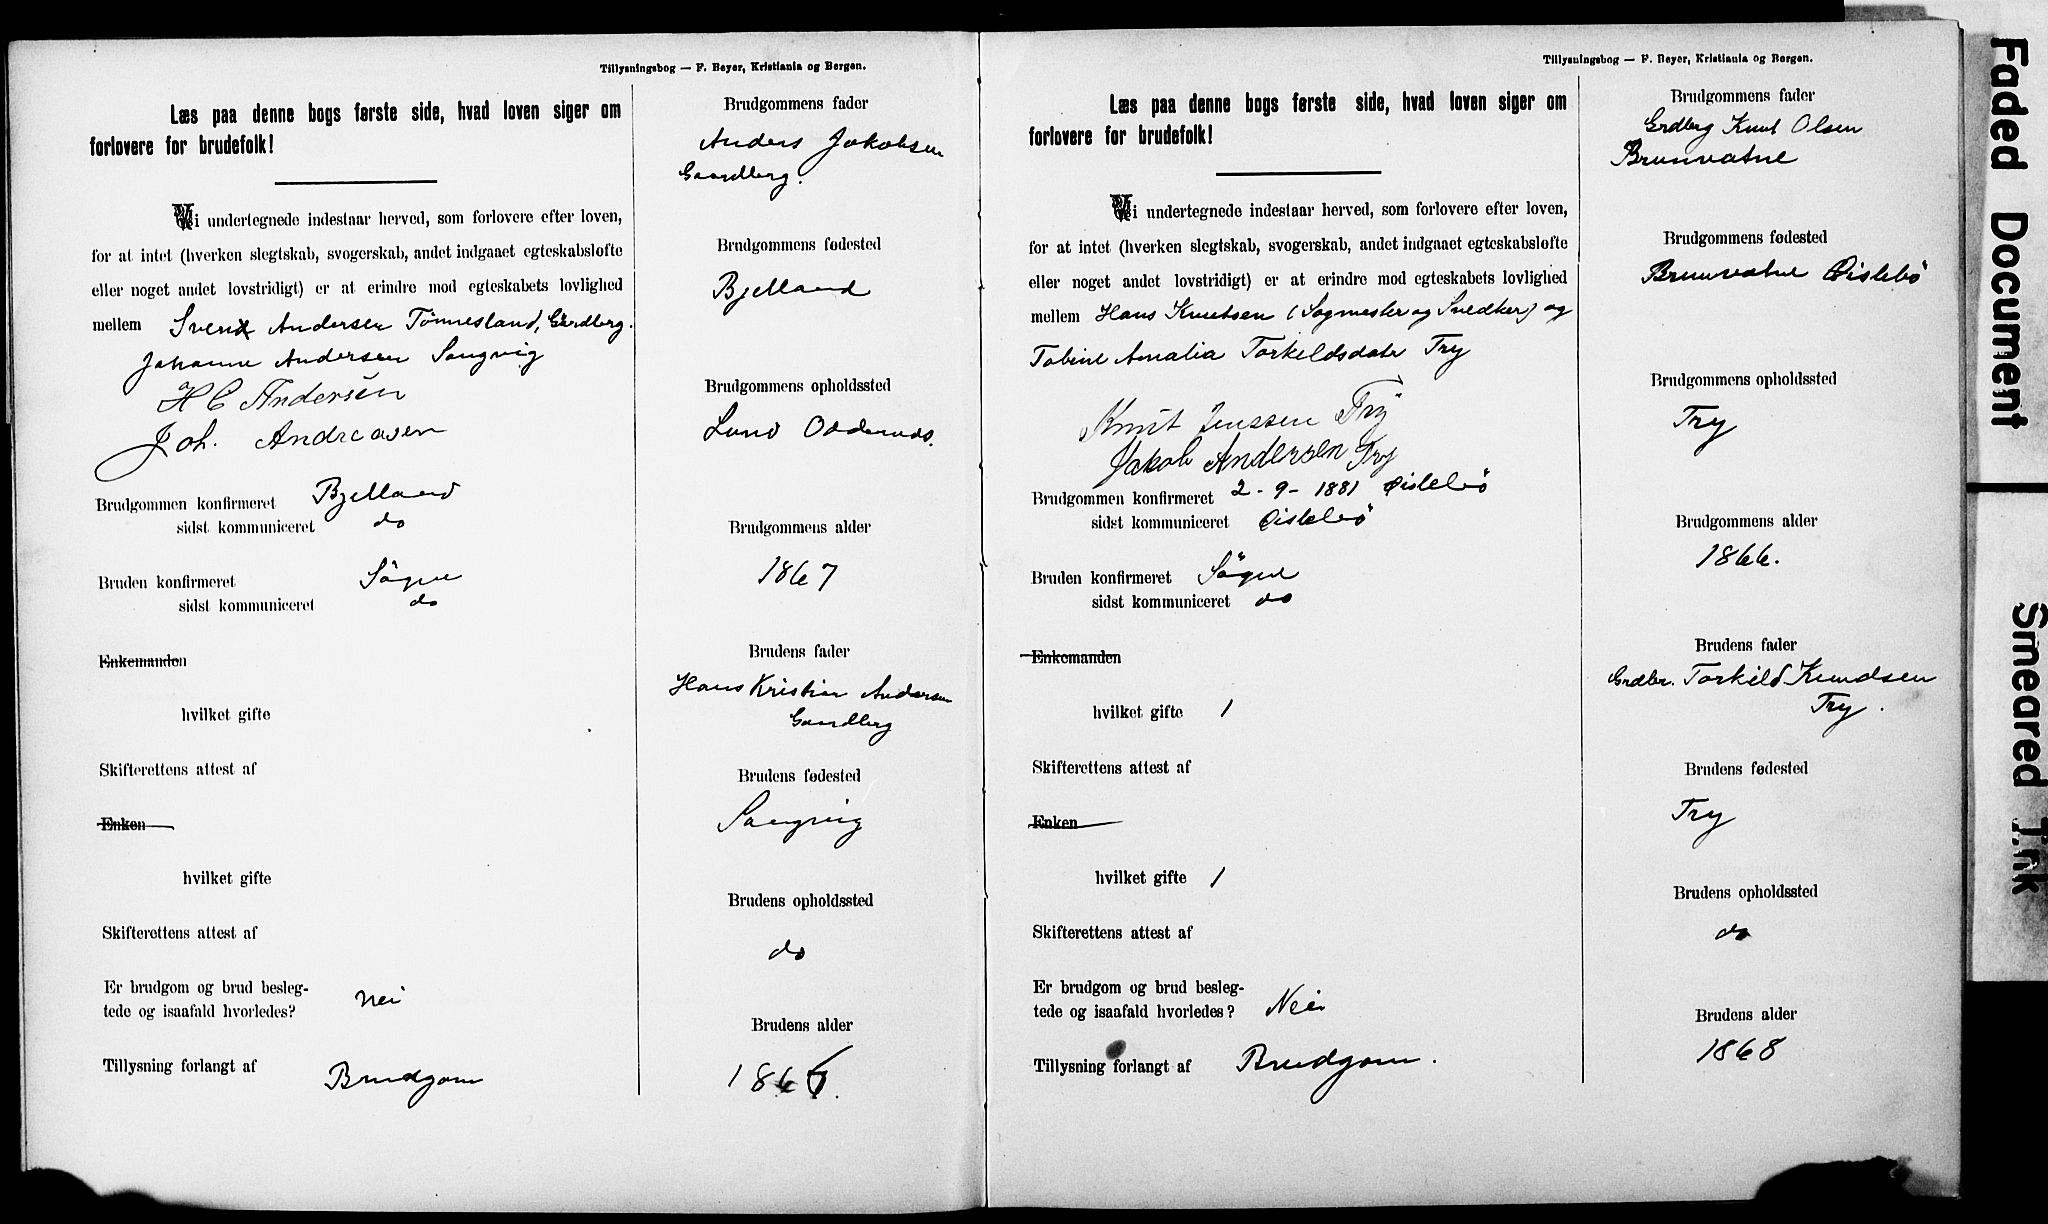 Tillysningsbog — F. Beyer, Kristiania og Bergen.
Læs paa denne bogs første side, hvad loven siger om
forlovere for brudefolk!
Vi undertegnede indestaar herved, som forlovere efter loven,
for at intet (hverken slegtskab, svogerskab, andet indgaaet egteskabsløfte
eller noget andet lovstridigt) er at erindre mod egteskabets lovlighed
mellem Svend Andersen Tönnesland, Grdberg.
Johanne Andersen Sangvig
H C Andersen
Joh. Andreasen
Brudgommen konfirmeret Bjelland
sidst kommuniceret do
Bruden konfirmeret Sögne
sidst kommuniceret do
Enkemanden
hvilket gifte
Skifterettens attest af
Enken
hvilket gifte
Skifterettens attest af
Er brudgom og brud besleg-
tede og isaafald hvorledes? Nei
Tillysning forlangt af Brudgom
Brudgommens fader
Anders Jakobsen
Gaardberg.
Brudgommens fødested
Bjelland
Brudgommens opholdssted
Lund Oddernes.
Brudgommens alder
1867
Brudens fader
Hans Kristian Andersen
Gaardberg
Brudens fødested
Sangvig
Brudens opholdssted
do
Brudens alder
Tillysningsbog — F. Beyer, Kristiania og Bergen.
Læs paa denne bogs første side, hvad loven siger om
forlovere for brudefolk!
Vi undertegnede indestaar herved, som forlovere efter loven,
for at intet (hverken slegtskab, svogerskab, andet indgaaet egteskabsløfte
eller noget andet lovstridigt) er at erindre mod egteskabets lovlighed
mellem Hans Knutsen (Sagmester og Snedker) og
Tobine Amalia Torkildsdater Try
Knut Jenssen Try
Jakob Andersen Try
Brudgommen konfirmeret 2-9-1881 Öislebö
sidst kommuniceret Öislebö
Bruden konfirmeret Sögne
sidst kommuniceret do
Enkemanden
hvilket gifte 1
Skifterettens attest af
Enken
hvilket gifte 1
Skifterettens attest af
Er brudgom og brud besleg-
tede og isaafald hvorledes? Nei
Tillysning forlangt af Brudgom.
Brudgommens fader
Grdberg Knut Olsen
Brunvatne
Brudgommens fødested
Brunvatne Öislebö
Brudgommens opholdssted
Try
Brudgommens alder
1866.
Brudens fader
Grdbr. Torkild Knudsen
Try.
Brudens fødested
Try
Brudens opholdssted
do
Brudens alder
1868
Faded Document
Smeared Ink